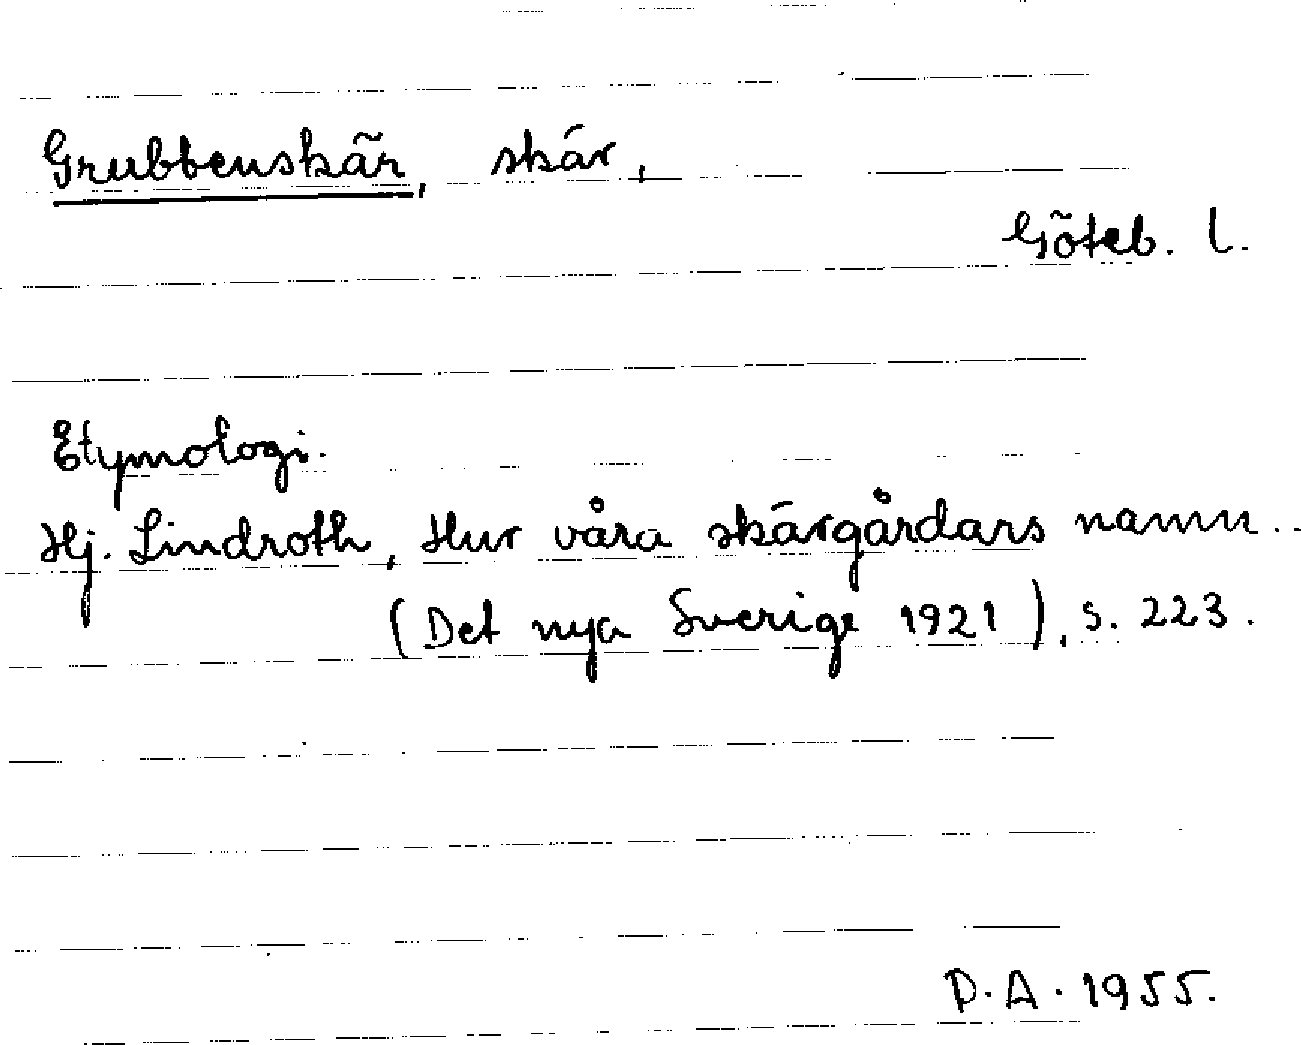 Grubbenskär, skär,
Göteb. l.
Etymologi.
Hj. Lindroth, Hur våra skärgårdars namn..
(Det nya Sverige 1921), s. 223.
D.A. 1955.